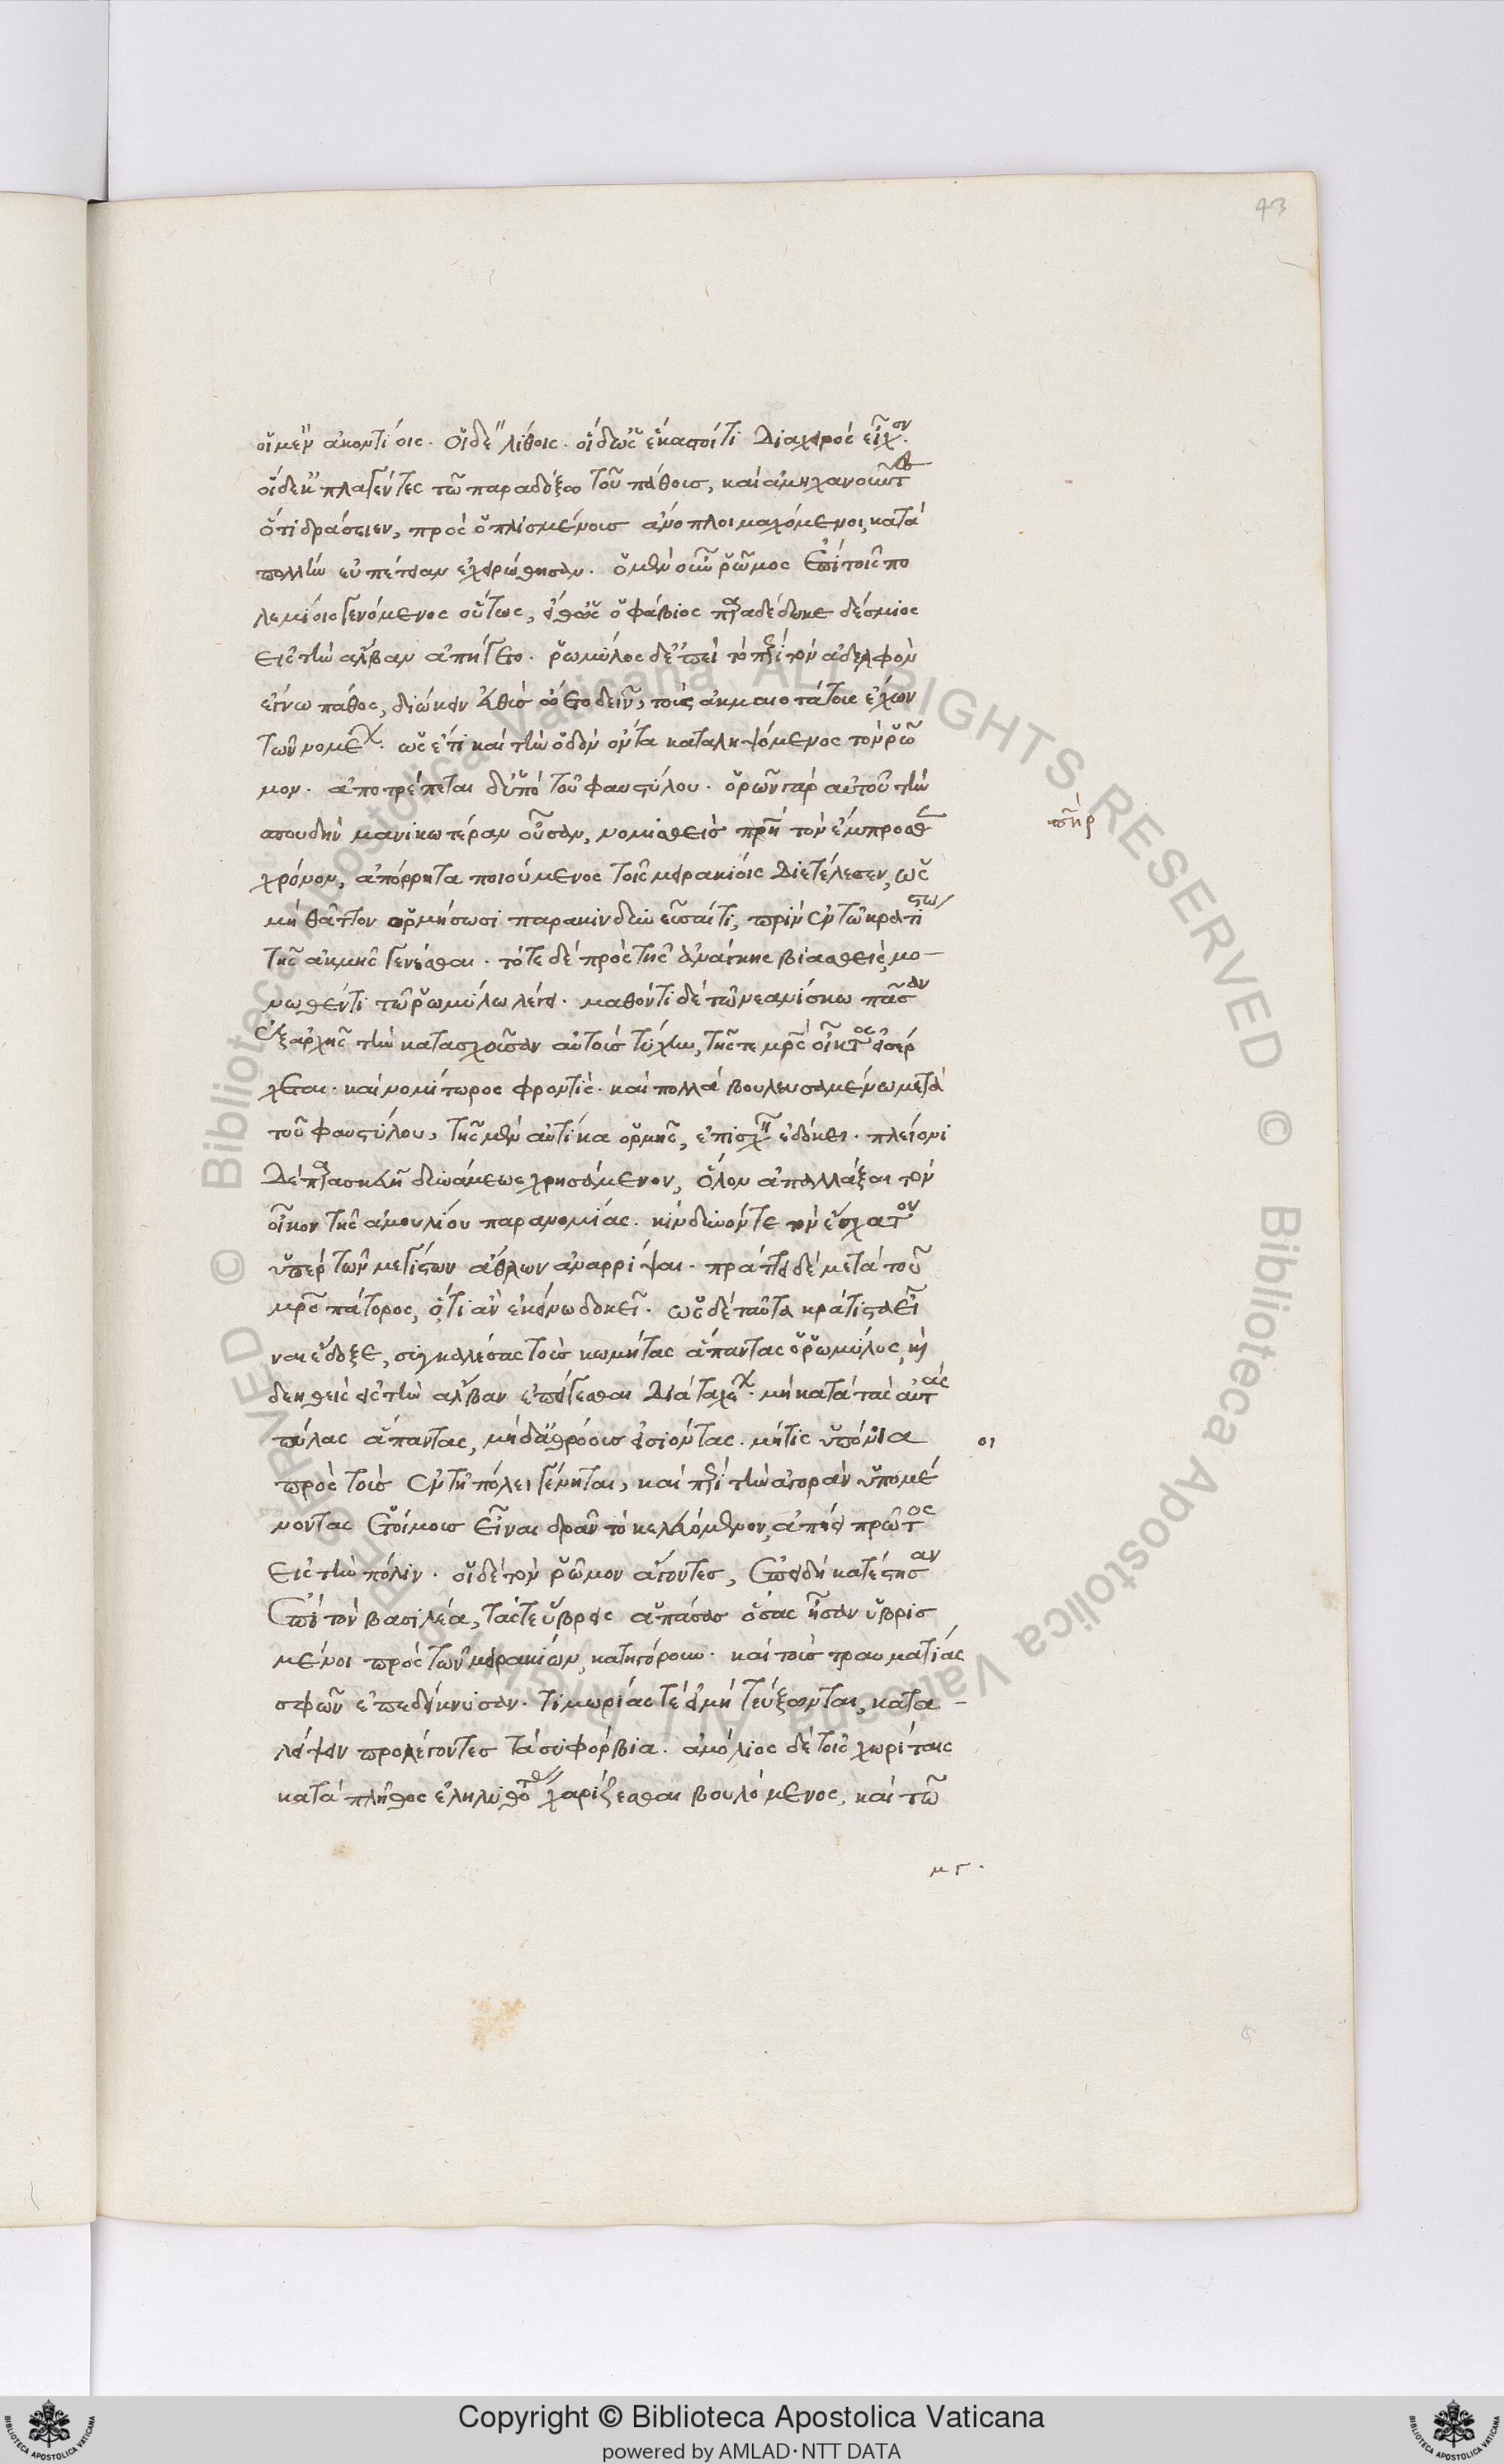 43
οἱ μὲν ἀκοντίοις. οἱ δὲ λίθοις. οἱ δ' ὡς ἕκαστοί τι διαχειρὸς εἶχον.
οἱ δ' ἐκπλαγέντες τῶ παραδόξω τοῦ πάθους, καὶ ἀμηχανοῦντες
ὅτι δράσειεν, πρὸς ὁπλισμένους ἄνοπλοι μαχόμενοι, κατὰ
πολλὴν εὐπέτειαν ἐχειρώθησαν. ὁ μὲν οὖν ῥῶμος ἐπὶ τοῖς πο
λεμίοις γενόμενος οὕτως, εἴθ' ὡς ὁ φάβιος παραδέδωκε δέσμιος
εἰς τὴν ἄλβαν ἀπήγετο. ῥωμύλος δ' ἐπεὶ τὸ περὶ τὸν ἀδελφὸν
ἔγνω πάθος, διώκειν εὐθὺς ὤετο δεῖν, τοὺς ἀκμαιοτάτους ἔχων
τῶν νομέων. ὡς ἔτι κατὰ τὴν ὁδὸν ὄντα καταληψόμενος τὸν ῥῶ
μον. ἀποτρέπεται δ' ὑπὸ τοῦ φαυστύλου. ὁρῶν γὰρ αὐτοῦ τὴν
σπουδὴν μανικωτέραν οὖσαν, νομισθεὶς πατὴρ τὸν ἔμπροσθεν
πατήρ
χρόνον, ἀπόρρητα ποιούμενος τοῖς μειρακίοις διετέλεσεν, ὡς
μὴ θᾶττον ὁρμήσωσι παρακινδυνεῦσαί τι, πρὶν ἐν τῶ κρατίστω
τῆς ἀκμῆς γενέσθαι. τότε δὲ πρὸς τῆς ἀνάγκης βιασθεὶς, μο-
νωθέντι τῶ ῥωμύλω λέγει. μαθόντι δὲ τῶ νεανίσκω πᾶσαν
ἐξ ἀρχῆς τὴν κατασχοῦσαν αὐτοὺς τύχην, τῆς τε μητρὸς οἶκτος εἰσέρ
χεται. καὶ νομήτορος φροντὶς. καὶ πολλὰ βουλευσαμένω μετὰ
τοῦ φαυστύλου, τῆς μὲν αὐτίκα ὁρμῆς, ἐπισχεῖν ἐδόκει. πλείονι
δὲ παρασκευῆ δυνάμεως χρησάμενον, ὅλον ἀπαλλάξαι τὸν
οἶκον τῆς ἀμουλίου παρανομίας. κίνδυνόν τε τὸν ἔσχατον
ὑπὲρ τῶν μεγίστων ἄθλων ἀναρρίψαι. πράττειν δὲ μετὰ τοῦ
μητροπάτορος, ὅτι ἂν ἐκείνω δοκεῖ. ὡς δὲ ταῦτα κράτιστα εἶ
ναι ἔδοξε, συγκαλέσας τοὺς κωμήτας ἅπαντας ὁ ῥωμύλος, καὶ
δεηθεὶς εἰς τὴν ἄλβαν ἐπείγεσθαι διαταχέων. μὴ κατὰ τὰς αὐτὰς
πύλας ἅπαντας, μηδ' ἀθρόους εἰσιόντας. μή τις ὑπόνια
οι
πρὸς τοὺς ἐν τῆ πόλει γένηται, καὶ περὶ τὴν ἀγορὰν ὑπομέ
νοντας ἑτοίμους εἶναι δρᾶν τὸ κελευόμενον, ἀπήει πρῶτος
εἰς τὴν πόλιν. οἱ δὲ τὸν ῥῶμον ἄγοντες, ἐπειδὴ κατέστησαν
ἐπὶ τὸν βασιλέα, τάς τε ὕβρεις ἁπάσας ὅσας ἦσαν ὑβρισ
μένοι πρὸς τῶν μειρακίων, κατηγόρουν. καὶ τοὺς τραυματίας
σφῶν ἐπεδείκνυσαν. τιμωρίας τε εἰ μὴ τεύξονται, κατα-
λείψειν προλέγοντες τὰ συφόρβια. ἀμόλιος δὲ τοῖς χωρίταις
κατὰ πλῆθος ἐληλυθόσι χαρίζεσθαι βουλόμενος, καὶ τῶ
μγ.
Copyright © Biblioteca Apostolica Vaticana
powered by AMLAD·NTT DATA